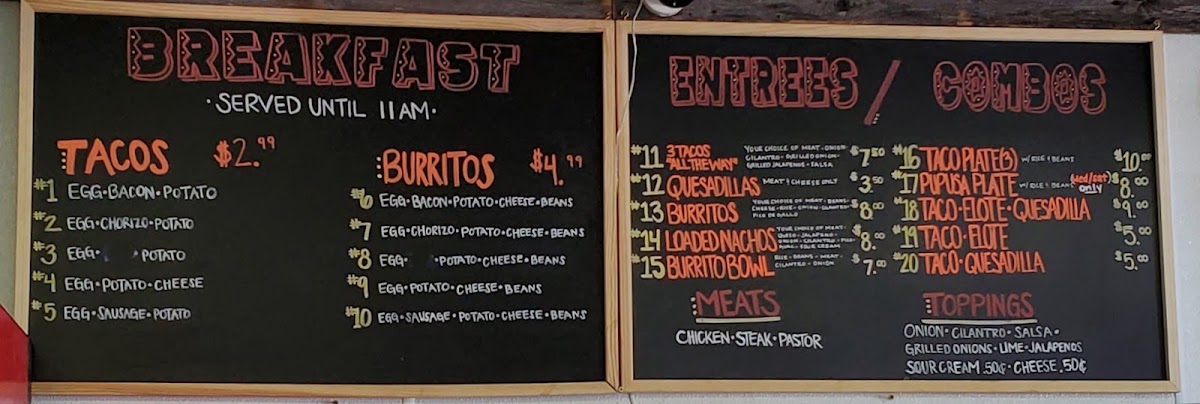 BREAKFAST
·SERVED UNTIL 11AM·
TACOS $2.99
#1 EGG·BACON·POTATO
#2 EGG·CHORIZO·POTATO
#3 EGG· POTATO
#4 EGG·POTATO·CHEESE
#5 EGG·SAUSAGE·POTATO
BURRITOS $4.99
#6 EGG·BACON·POTATO·CHEESE·BEANS
#7 EGG·CHORIZO·POTATO·CHEESE·BEANS
#8 EGG· ·POTATO·CHEESE·BEANS
#9 EGG·POTATO·CHEESE·BEANS
#10 EGG·SAUSAGE·POTATO·CHEESE·BEANS
ENTREES / COMBOS
#11 3 TACOS "ALL THE WAY" $7.50
YOUR CHOICE OF MEAT·ONION·
CILANTRO·GRILLED ONION·
GRILLED JALAPENOS·SALSA
#12 QUESADILLAS MEAT & CHEESE ONLY $3.50
#13 BURRITOS $8.00
YOUR CHOICE OF MEAT·BEANS·
CHEESE·RICE·ONION·CILANTRO·
PICO DE GALLO
#14 LOADED NACHOS $8.00
YOUR CHOICE OF MEAT·
QUESO·JALAPENO·
ONION·CILANTRO·PICO·
SOUR CREAM
#15 BURRITO BOWL $7.00
RICE·BEANS·MEAT·
CILANTRO·ONION
#16 TACO PLATE (3) W/ RICE & BEANS $10.00
#17 PUPUSA PLATE W/ RICE & BEANS (Wed/Sat) only $8.00
#18 TACO·ELOTE·QUESADILLA $9.00
#19 TACO·ELOTE $5.00
#20 TACO·QUESADILLA $5.00
MEATS
CHICKEN·STEAK·PASTOR
TOPPINGS
ONION·CILANTRO·SALSA·
GRILLED ONIONS·LIME·JALAPENOS
SOUR CREAM .50¢·CHEESE .50¢